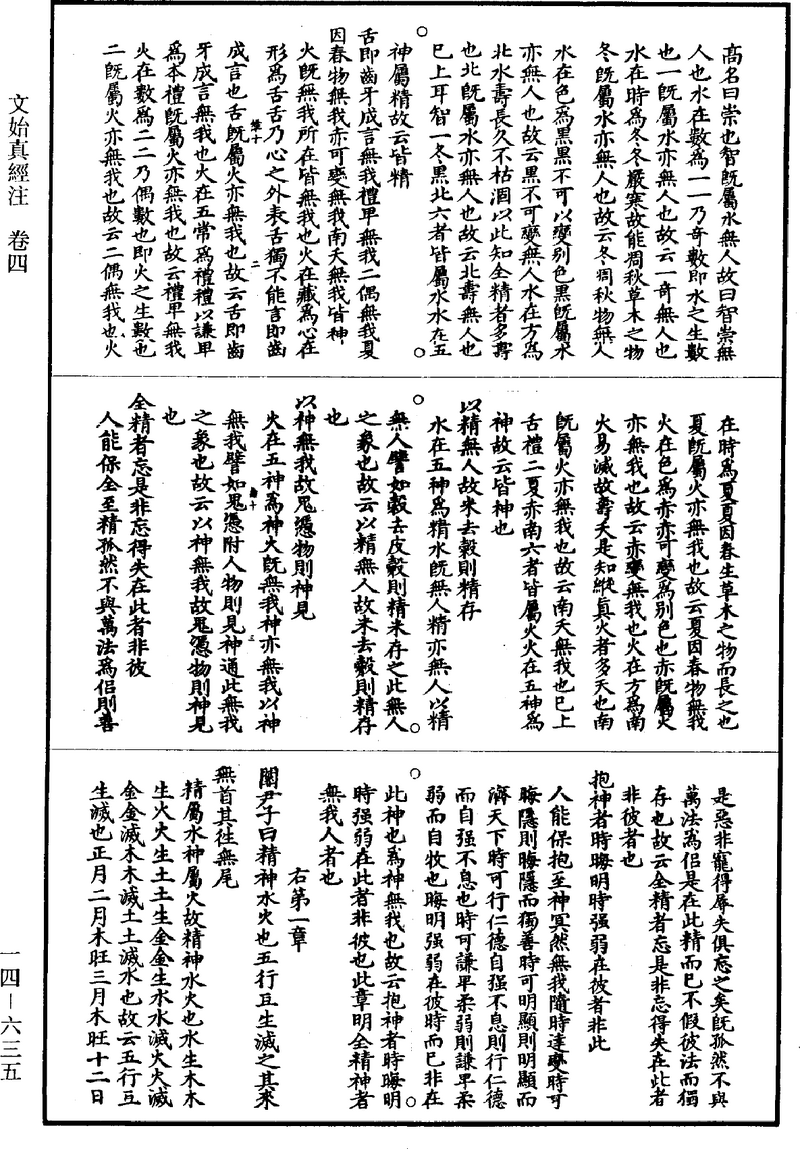 文始真經注　卷四
一四—六三五
高名曰崇也智既屬水無人故曰智崇無
人也水在數爲一一乃奇數即水之生數
也一既屬水亦無人也故云一奇無人也
水在時爲冬冬嚴寒故能凋秋草木之物
冬既屬水亦無人也故云冬凋秋物無人
水在色爲黑黑不可以變别色黑既屬水
亦無人也故云黑不可變無人水在方爲
北水壽長久不枯涸以此知全精者多壽
也北既屬水亦無人也故云北壽無人也
已上耳智一冬黑北六者皆屬水水在五
神屬精故云皆精
舌即齒牙成言無我禮卑無我二偶無我夏
因春物無我亦可變無我南夭無我皆神
火既無我所在皆無我也火在藏爲心在
形爲舌舌乃心之外表舌獨不能言即齒
成言也舌既屬火亦無我也故云舌即齒
牙成言無我也火在五常爲禮禮以謙卑
爲本禮既屬火亦無我也故云禮卑無我
火在數爲二二乃偶數也即火之生數也
二既屬火亦無我也故云二偶無我也火
在時爲夏夏因春生草木之物而長之也
夏既屬火亦無我也故云夏因春物無我
火在色爲赤赤可變爲别色也赤既屬火
亦無我也故云赤變無我也火在方爲南
火易滅故壽夭是知縱真火者多夭也南
既屬火亦無我也故云南夭無我也已上
舌禮二夏赤南六者皆屬火火在五神爲
神故云皆神也
以精無人故米去殼則精存
水在五神爲精水既無人精亦無人以精
無人譬如穀去皮殼則精米存之此無人
之象也故云以精無人故米去殼則精存
也
以神無我故鬼憑物則神見
火在五神爲神火既無我神亦無我以神
無我譬如鬼憑附人物則見神通此無我
之象也故云以神無我故鬼憑物則神見
也
全精者忘是非忘得失在此者非彼
人能保全至精孤然不與萬法爲侣則善
是惡非寵得辱失俱忘之矣既孤然不與
萬法爲侣是在此精而已不假彼法而獨
存也故云全精者忘是非忘得失在此者
非彼者也
抱神者時晦明時强弱在彼者非此
人能保抱至神冥然無我隨時達變時可
晦隱則晦隱而獨善時可明顯則明顯而
濟天下時可行仁德自强不息則行仁德
而自强不息也時可謙卑柔弱則謙卑柔
弱而自牧也晦明强弱在彼時而已非在
此神也爲神無我也故云抱神者時晦明
時强弱在此者非彼也此章明全精神者
無我人者也
右第一章
關尹子曰精神水火也五行互生滅之其來
無首其往無尾
精屬水神屬火故精神水火也水生木木
生火火生土土生金金生水水滅火火滅
金金滅木木滅土土滅水也故云五行互
生滅也正月二月木旺三月木旺十二日